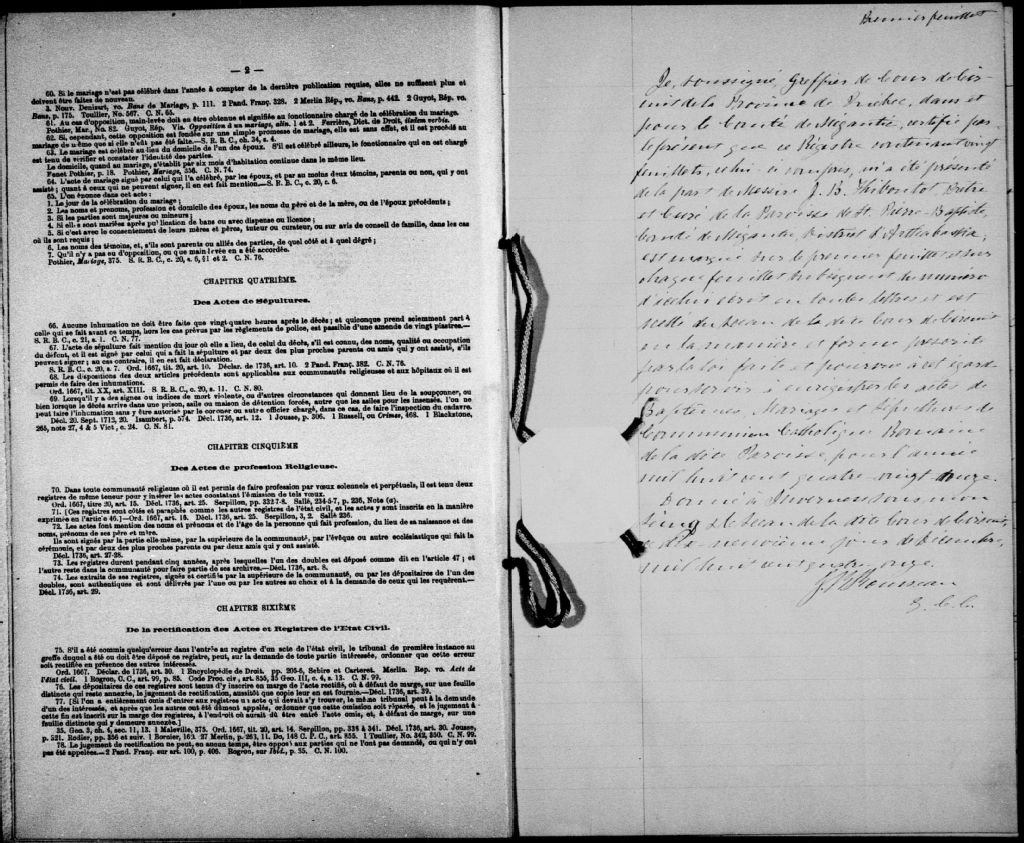 — 2 —
60. Si le mariage n'est pas célébré dans l'année à compter de la dernière publication requise, elles ne suffisent plus et
doivent être faites de nouveau.
3. Nouv. Denisart, vo. Bans de Mariage, p. 111. 2 Pand. Franç. 328. 2 Merlin Rép., vo. Bans, p. 442. 2 Guyot, Rép. vo.
Bans, p. 175. Toullier, No. 567. C. N. 65.
61. Au cas d'opposition, main-levée doit en être obtenue et signifiée au fonctionnaire chargé de la célébration du mariage.
Pothier, Mar., No. 82. Guyot, Rép. Vis. Opposition à un mariage, alin. 1 et 2. Ferrière, Dict. de Droit, iisdem verbis.
62. Si, cependant, cette opposition est fondée sur une simple promesse de mariage, elle est sans effet, et il est procédé au
mariage de même que si elle n'eût pas été faite.—S. R. B. C., ch. 34, s. 4.
63. Le mariage est célébré au lieu du domicile de l'un des époux. S'il est célébré ailleurs, le fonctionnaire qui en est chargé
est tenu de vérifier et constater l'identité des parties.
Le domicile, quant au mariage, s'établit par six mois d'habitation continue dans le même lieu.
Fenet Pothier, p. 18. Pothier, Mariage, 356. C. N. 74.
64. L'acte de mariage signé par celui qui l'a célébré, par les époux, et par au moins deux témoins, parents ou non, qui y ont
assisté; quant à ceux qui ne peuvent signer, il en est fait mention.—S. R. B. C., c. 20, s. 6.
65. L'on énonce dans cet acte:
1. Le jour de la célébration du mariage;
2. Les noms et prénoms, profession et domicile des époux, les noms du père et de la mère, ou de l'époux précédents;
3. Si les parties sont majeures ou mineurs;
4. Si elles sont mariées après publication de bans ou avec dispense ou licence;
5. Si c'est avec le consentement de leurs mères et pères, tuteur ou curateur, ou sur avis de conseil de famille, dans les cas
où ils sont requis;
6. Les noms des témoins, et, s'ils sont parents ou alliés des parties, de quel côté et à quel dégré;
7. Qu'il n'y a pas eu d'opposition, ou que main levée en a été accordée.
Pothier, Mariage, 375. S. R. B. C., c. 20, s. 6, §1 et 2. C. N. 76.
CHAPITRE QUATRIÈME.
Des Actes de Sépultures.
66. Aucune inhumation ne doit être faite que vingt-quatre heures après le décès; et quiconque prend sciemment part à
celle qui se fait avant ce temps, hors les cas prévus par les règlements de police, est passible d'une amende de vingt piastres.—
S. R. B. C., c. 21, s. 1. C. N. 77.
67. L'acte de sépulture fait mention du jour où elle a lieu, de celui du décès, s'il est connu, des noms, qualité ou occupation
du défunt, et il est signé par celui qui a fait la sépulture et par deux des plus proches parents ou amis qui y ont assisté, s'ils
peuvent signer; au cas contraire, il en est fait déclaration.
S. R. B. C., c. 20, s. 7. Ord. 1667, tit. 20, art. 10. Déclar. de 1736, art. 10. 2 Pand. Franç. 382. C. N. 76.
68. Les dispositions des deux articles précédents sont applicables aux communautés religieuses et aux hôpitaux où il est
permis de faire des inhumations.
Ord. 1667, tit. XX, art. XIII. S. R. B. C., c. 20, s. 11. C. N. 80.
69. Lorsqu'il y a des signes ou indices de mort violente, ou d'autres circonstances qui donnent lieu de la soupçonner, ou
bien lorsque le décès arrive dans une prison, salle ou maison de détention forcée, autre que les asiles pour les insensés, l'on ne
peut faire l'inhumation sans y être autorisé par le coroner ou autre officier chargé, dans ce cas, de faire l'inspection du cadavre.
Décl. 20. Sept. 1712, 20. Isambert, p. 574. Décl. 1736, art. 12. 1 Jousse, p. 306. 1 Russell, ou Crimes, 468. 1 Blackstone,
265, note 27, 4 & 5 Vict., c. 24. C. N. 81.
CHAPITRE CINQUIÈME
Des Actes de profession Religieuse.
70. Dans toute communauté religieuse où il est permis de faire profession par vœux solennels et perpétuels, il est tenu deux
registres de même teneur pour y insérer les actes constatant l'émission de tels vœux.
Ord. 1667, titre 20, art. 15. Décl. 1736, art. 25. Serpillon, pp. 332-7-8. Sallé, 234-5-7, p. 236, Note (a).
71. (Ces registres sont côtés et paraphé comme les autres registres de l'état civil, et les actes y sont inscrits en la manière
exprimée en l'article 46.)—Ord. 1667, art. 16. Décl. 1736, art. 25. Serpillon, 3, 2. Sallé 236.
72. Les actes font mention des noms et prénoms et de l'âge de la personne qui fait profession, du lieu de sa naissance et des
noms, prénoms de ses père et mère.
Ils sont signés par la partie elle-même, par la supérieure de la communauté, par l'évêque ou autre ecclésiastique qui fait la
cérémonie, et par deux des plus proches parents ou par deux amis qui y ont assisté.
Décl. 1736, art. 27-28.
73. Les registres durent pendant cinq années, après lesquelles l'un des doubles est déposé comme dit en l'article 47; et
l'autre reste dans la communauté pour faire partie de ses archives.—Décl. 1736, art. 8.
74. Les extraits de ses registres, signés et certifiés par la supérieure de la communauté, ou par les dépositaires de l'un des
doubles, sont authentiques et sont délivrés par l'une ou par les autres au choix et à la demande de ceux qui les requèrent.—
Décl. 1736, art. 29.
CHAPITRE SIXIÈME
De la rectification des Actes et Registres de l'Etat Civil.
75. S'il a été commis quelqu'erreur dans l'entrée au registre d'un acte de l'état civil, le tribunal de première instance au
greffe duquel a été ou doit être déposé ce registre, peut, sur la demande de toute partie intéressée, ordonner que cette erreur
soit rectifiée en présence des autres intéressés.
Ord. 1667. Déclar. de 1736, art. 30. 1 Encyclopédie de Droit. pp. 205-6, Sebire et Carteret. Merlin. Rep. vo. Acte de
l'état civil. 1 Rogron, C. C., art. 99, p. 85. Code Proc. civ., art. 855, 35 Geo. III, c. 4, s. 13. C. N. 99.
76. Les dépositaires de ces registres sont tenus d'y inscrire en marge de l'acte rectifié, où à défaut de marge, sur une feuille
distincte qui reste annexée, le jugement de rectification, aussitôt que copie leur en est fournie.—Décl. 1736, art. 39.
77. (Si l'on a entièrement omis d'entrer aux registres un acte qui devait s'y trouver, le même tribunal peut à la demande
d'un des intéressés, et après que les autres ont été dûment appelés, ordonner que cette omission soit réparée, et le jugement à
cette fin est inscrit sur la marge des registres, à l'endroit où aurait dû être entré l'acte omis, et, à défaut de marge, sur une
feuille distincte qui y demeure annexée.)
35. Geo. 3, ch. 4, sec. 11, 13. 1 Maleville, 375. Ord. 1667, tit. 20, art. 14. Serpillon, pp. 338 & 341. Décl. 1736, art. 30. Jousse,
p. 521. Rodier, pp. 356 et suiv. 1 Bornier, 160. 27 Merlin, p. 263, 11. Do, 148 C. P. C., art. 855. 1 Toullier, No. 342, 350. C. N. 99.
78. Le jugement de rectification ne peut, en aucun temps, être opposé aux parties qui ne l'ont pas demandé, ou qui n'y ont
pas été appelées.—2 Pand. Franç. sur art. 100, p. 406. Rogron, sur Ibid., p. 35. C. N. 100.
Premier feuillet
Je, soussigné, Greffier de Cour de Cir-
cuit de la Province de Québec, dans et
pour le Comté de Mégantic, certifie par
le présent que ce Régistre contenant vingt
feuillets, celui-ci compris, m'a été présenté
de la part de Messire J. B. Thiboutot Prêtre
et Curé de la Paroisse de St. Pierre-Baptiste,
Comté de Mégantic, District d'Arthabaska,
est marqué sur le premier feuillet et sur
chaque feuillet subséquent du numéro
d'icelui écrit en toutes lettres et est
scellé du Sceau de la dite Cour de Circuit
en la manière et forme prescrite
par la loi faite et pourvue à cet égard
pour servir à enregistrer les actes de
Baptêmes, Mariages et Sépultures de
Communion Catholique Romaine
de la dite Paroisse, pour l'année
mil huit cent quatre vingt douze.
Donné à Inverness sous mon
seing & le Sceau de la dite Cour de Circuit,
ce dix-neuvième jour de Décembre,
mil huit cent quatre onze.
Rousseau
G. C. C.